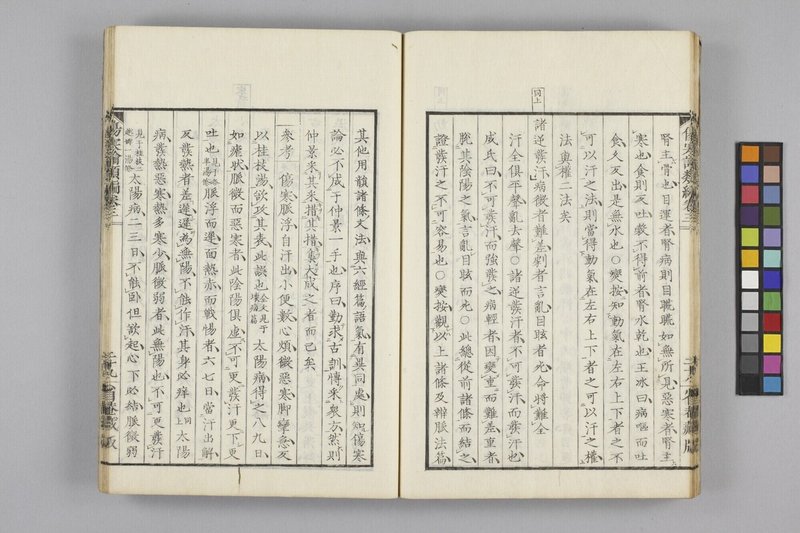 腎主骨也目運者腎病則目䀮䀮如無所見惡寒者腎主
寒也食則反吐穀不得前者腎水乾也王冰曰病嘔而吐
食久反出是無水也○變按知動氣在左右上下者之不
可以汗之法則當得動氣在左右上下者之可以汗之權
法與權二法矣
同上
諸逆發汗病微者難差劇者言亂目眩者死命將難全
汗全俱平聲亂去聲○諸逆發汗者不可發汗而發汗也
成氏曰不可發汗而強發之病輕者因變重而難差重者
脫其陰陽之氣言亂目眩而死○此總從前諸條而結之
證發汗之不可容易也○變按觀以上諸條及辨脈法篇
其他用韻諸條文法與六經篇語氣有異同處則知傷寒
論必不成于仲景一手也序曰勤求古訓博采衆方然則
仲景采其采措其措集大成之者而已矣
參考 傷寒脈浮自汗出小便數心煩微惡寒脚攣急反
以桂枝湯欲攻其表此誤也全文見于壞病篇 太陽病得之八九日
如瘧狀脈微而惡寒者此陰陽俱虛不可更發汗更下更
吐也見于各半湯條 脈浮而遲面熱赤而戰惕者六七日當汗出解
反發熱者差遲遲爲無陽不能作汗其身必痒也同上 太陽
病發熱惡寒熱多寒少脈微弱者此無陽也不可更發汗
見于桂枝二越婢一湯條 太陽病二三日不能臥但欲起心下必結脈微弱
傷寒論類編卷三